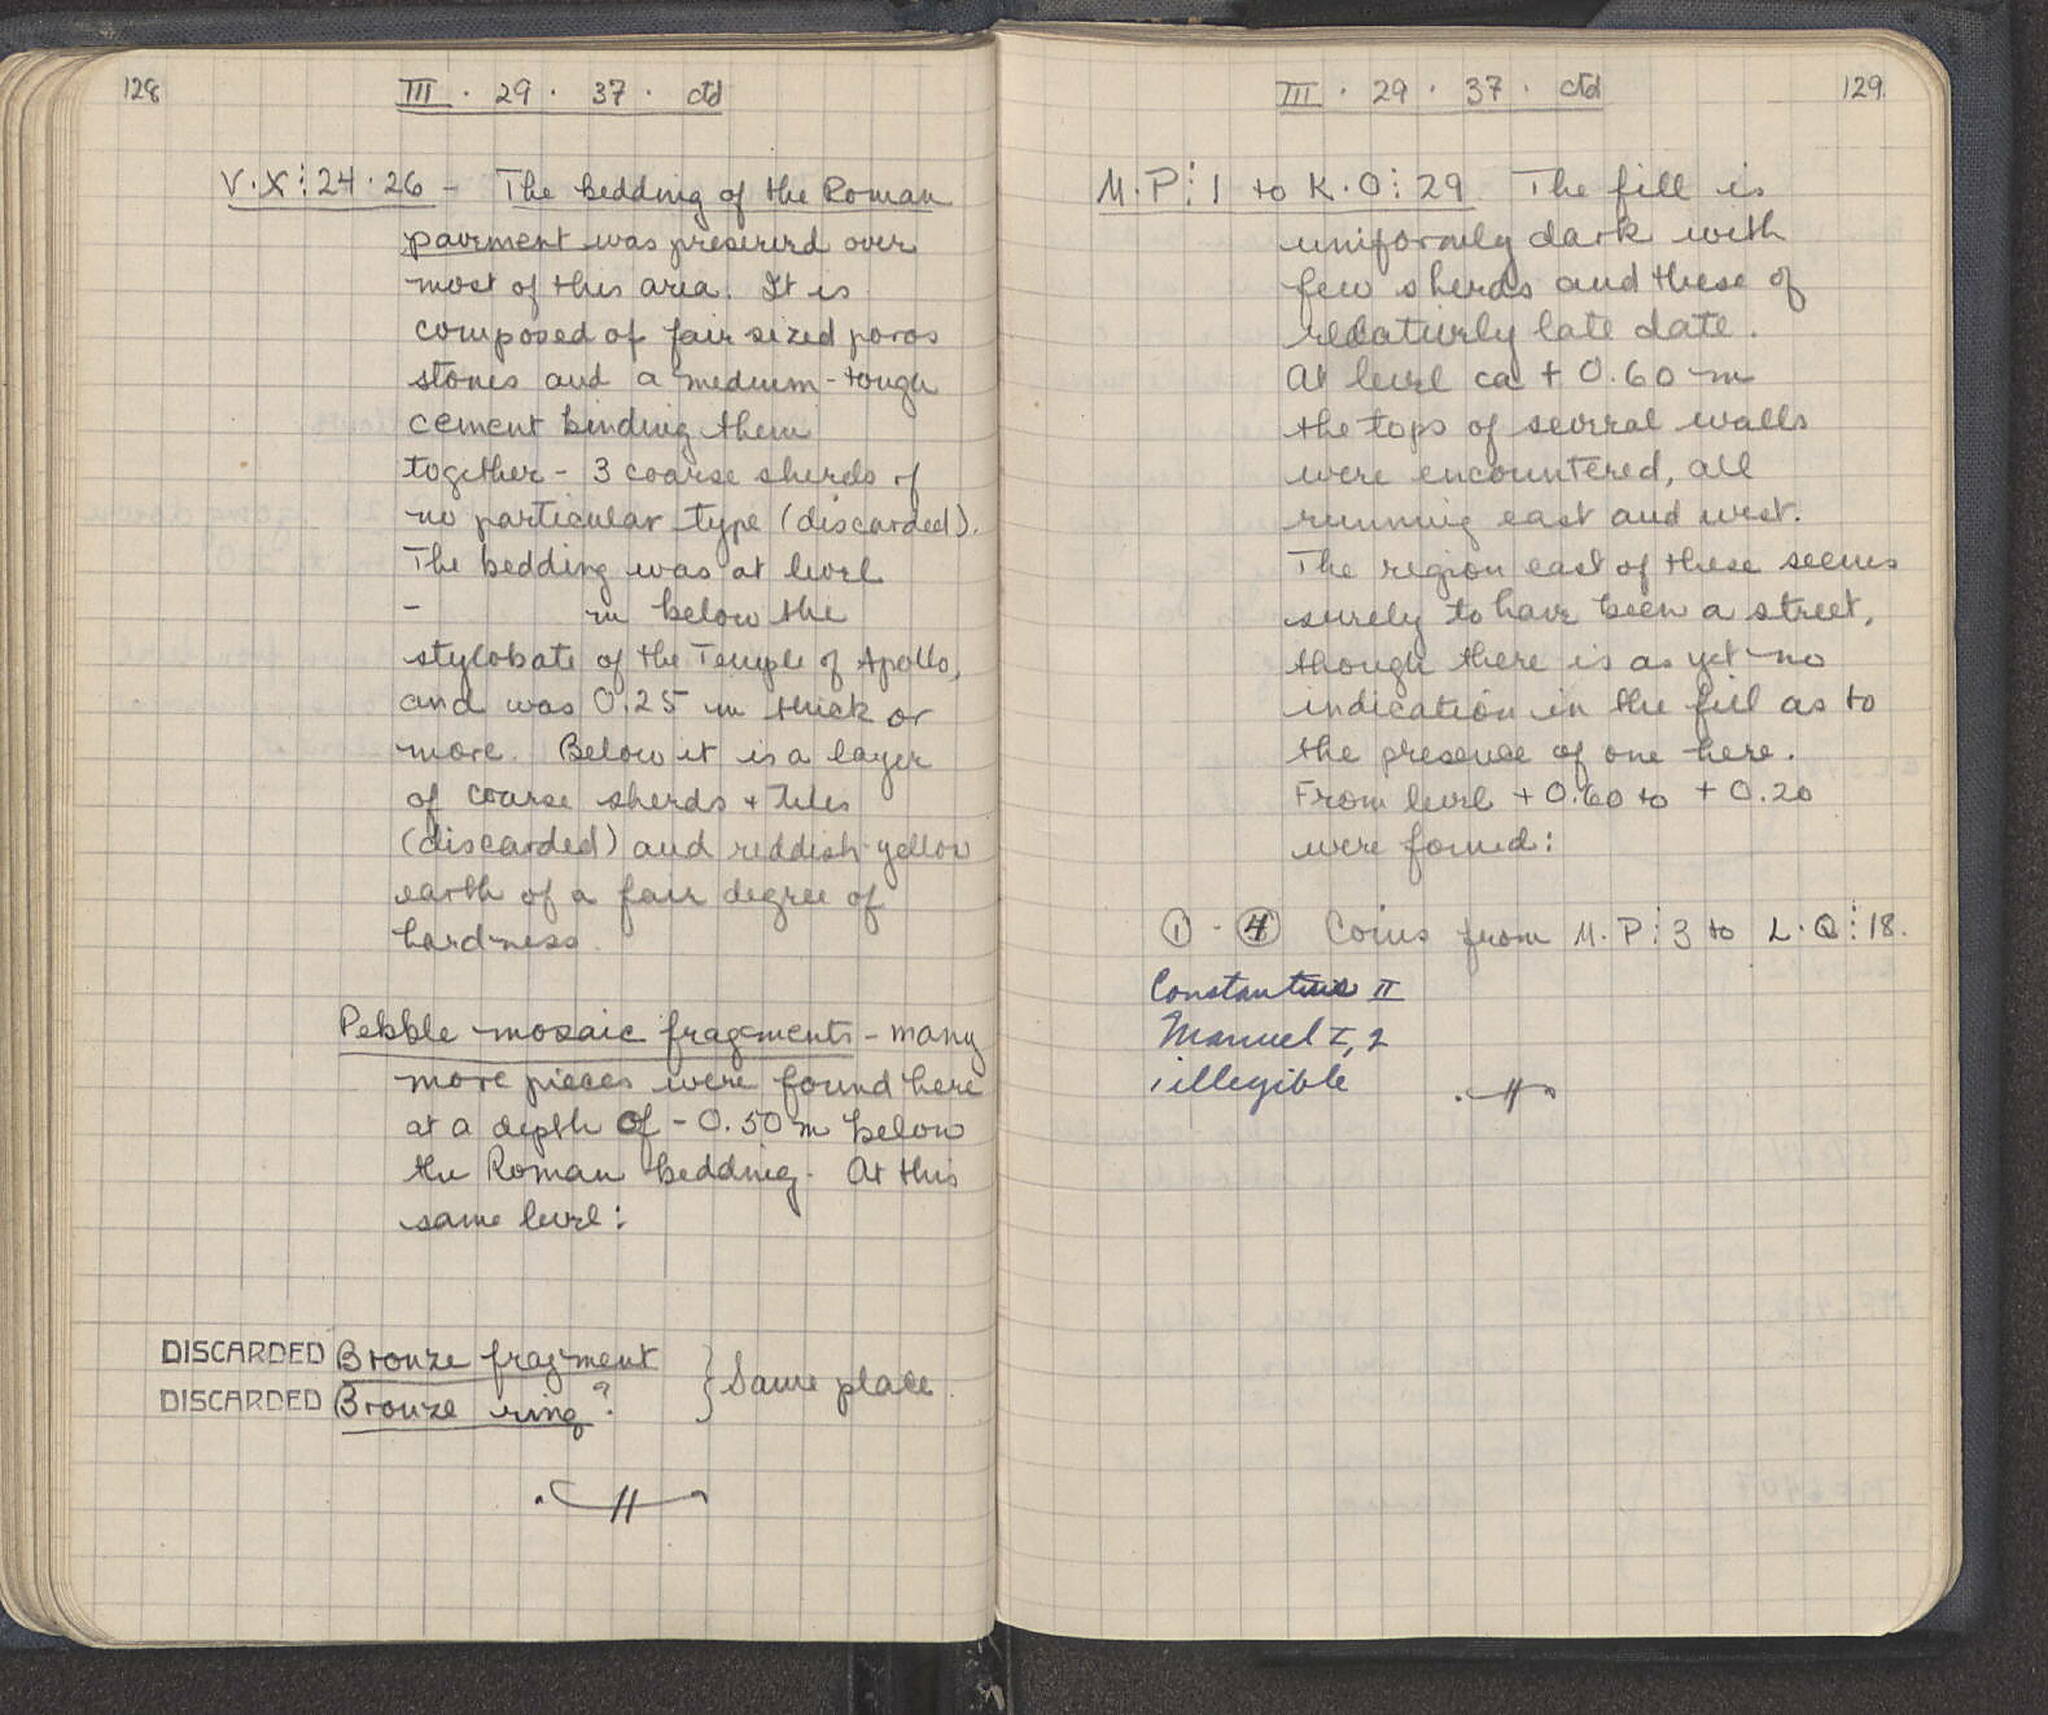 128
III . 29 . 37 . ctd
V.X⋮24.26 - The bedding of the Roman
pavement was preserved over
most of this area. It is
composed of fair sized poros
stones and a medium-tough
cement binding them
together - 3 coarse sherds of
no particular type (discarded).
The bedding was at level
- m below the
stylobate of the Temple of Apollo,
and was 0.25 m thick or
more. Below it is a layer
of coarse sherds + tiles
(discarded) and reddish-yellow
earth of a fair degree of
hardness.
Pebble mosaic fragments - many
more pieces were found here
at a depth of - 0.50 m below
the Roman bedding. At this
same level:
DISCARDED Bronze fragment } Same place.
DISCARDED Bronze ring?
III . 29 . 37 . ctd
129.
M.P⋮1 to K.O⋮29 The fill is
uniformly dark with
few sherds and these of
relatively late date.
At level ca + 0.60 m
the tops of several walls
were encountered, all
running east and west.
The region east of these seems
surely to have been a street,
though there is as yet no
indication in the fill as to
the presence of one here.
From level + 0.60 to + 0.20
were found:
① - ④ Coins from M.P⋮3 to L.Q⋮18.
Constantius II
Manuel I, 2
1 illegible